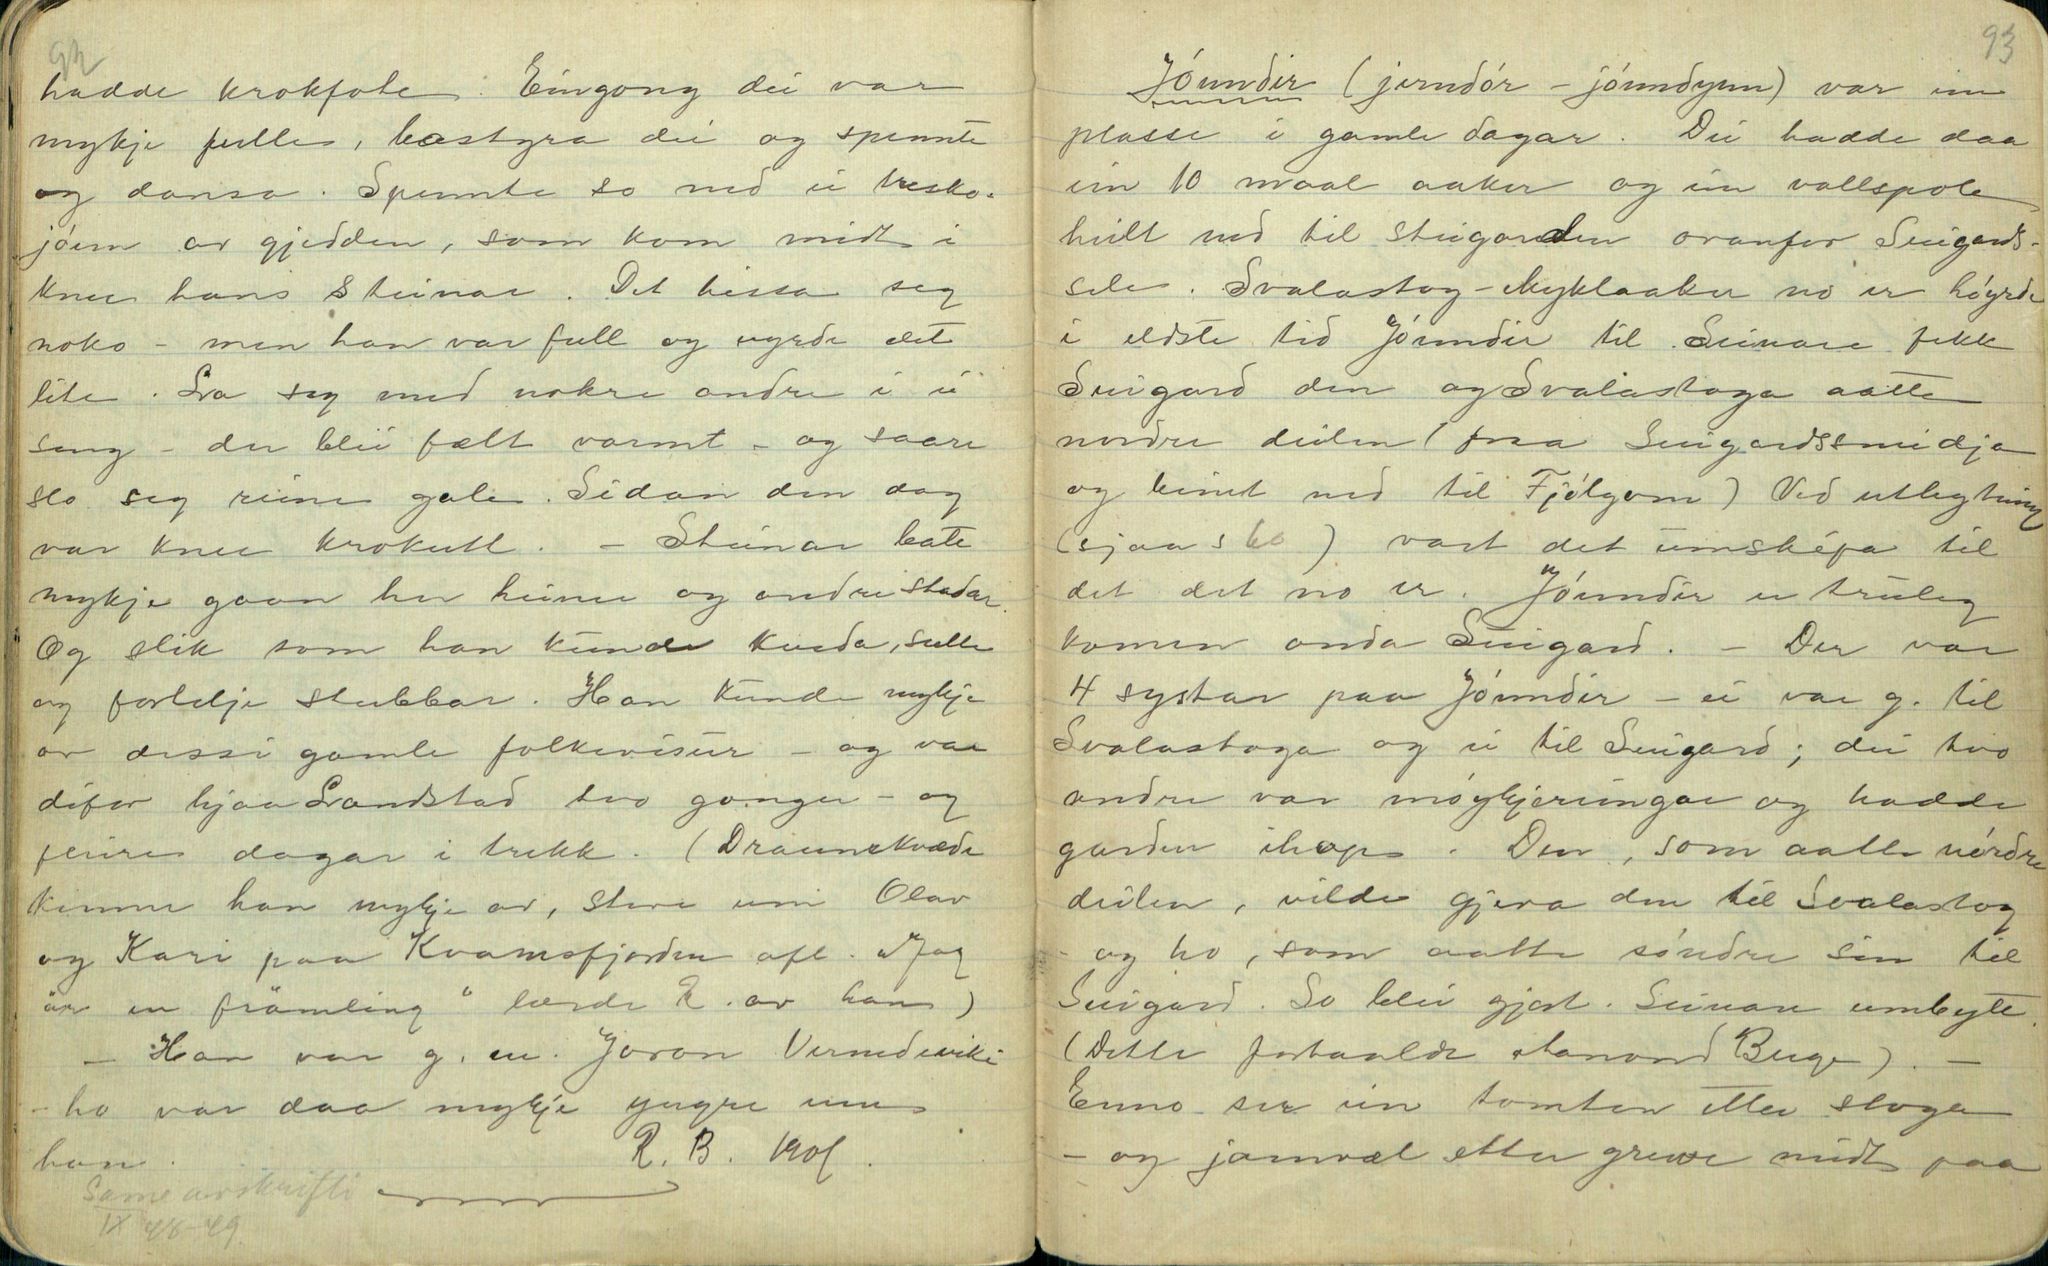 92
hadde krokfote. Eingong dei var
mykje fulle, bastyra dei og spennte
og dansa. Spennte so ned ei tresko-
jónn av gjedden, som kom midt i
knee hans Steinar. Det hissa seg
noko - men han var full og vyrde det
lite. La seg med nokre andre i ei
seng - der blei fælt varmt - og saare
slo seg reine gale. Sidan den dag
var knee krokutt. - Steinar bate
mykje gaan her heime og andre stadar.
Og slik som han kunde kveda, sulle
og fortelje stubbar. Han kunde mykje
av dessi gamle folkevisur - og var
difor hjaa Landstad tvo gonger - og
fleire dagar i trekk. (Draumekvæde
kunne han mykje av, steve um Olav
og Kari paa Kvamsfjorden ofl. "Jag
är en främling" lærde R. av han)
- Han var g. m. Joron Vermedeviki
- ho var daa mykje yngre enn
han. R. B. 1901.
Same avskrifti
IX 48-49
93
Jóunndir (jerndór - jóunndynn) var ein
plasse i gamle dagar. Dei hadde daa
ein 10 maal aaker og ein vollspole
heilt ned til steigarden ovanfor Seigards-
sele. Svalastog-Myklaaker no er høyrde
i eldste tid Jóunndir til. Seinare fekk
Seigard den og Svalastoga aatte
nordre deilen (fraa Seigardssmidja
og beint ned til Fjólgom) Ved utlegtning
(sjaa s 60) vart det umsképa til
det det no er. Jóunndir er truleg
komen onda Seigard. - Der var
4 systar paa Jóunndir - ei var g. til
Svalastoga og ei til Seigard; dei tvo
andre var móykjeringar og hadde
garden ihops. Den, som aatte nórdre
deilen, vilde gjeva den til Svalastog
- og ho, som aatte sóndre sin til
Seigard. So blei gjort. Seinare umbyte.
(Dette fortaalde Hanond Buge). -
Enno ser ein tomten etter stoga
- og jamvæl etter greive midt paa